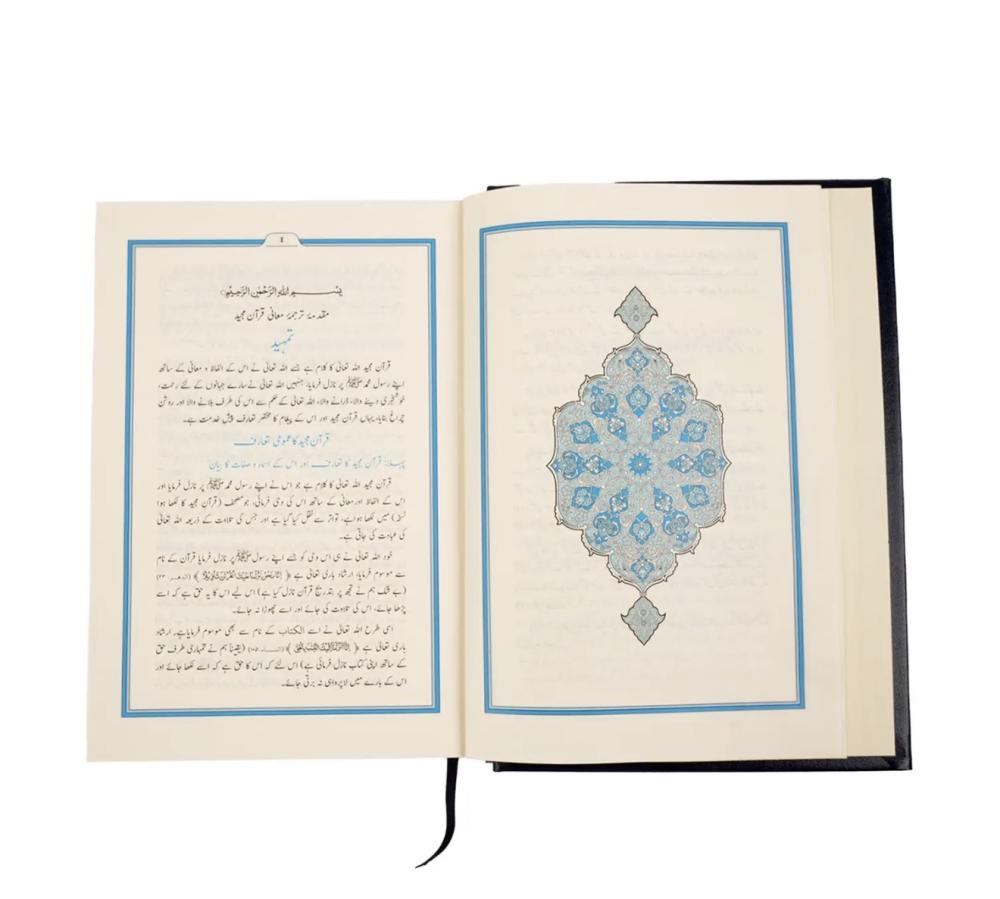 1
بِسْمِ اللهِ الرَّحْمٰنِ الرَّحِيْمِ
مقدمۂ ترجمۂ معانی قرآن مجید
تمہید
قرآن مجید اللہ تعالیٰ کا کلام ہے جسے اللہ تعالیٰ نے اس کے الفاظ و معانی کے ساتھ
اپنے رسول محمد ﷺ پر نازل فرمایا، جنہیں اللہ تعالیٰ نے سارے جہانوں کے لئے رحمت،
خوشخبری دینے والا، ڈرانے والا، اللہ تعالیٰ کے حکم سے اس کی طرف بلانے والا اور روشن
چراغ بنایا، یہاں قرآن مجید اور اس کے پیغام کا مختصر تعارف پیش خدمت ہے۔
قرآن مجید کا عمومی تعارف
پہلا: قرآن مجید کا تعارف اور اس کے اسماء و صفات کا بیان
قرآن مجید اللہ تعالیٰ کا کلام ہے جو اس نے اپنے رسول محمد ﷺ پر نازل فرمایا اور
اس کے الفاظ اور معانی کے ساتھ اس کی وحی فرمائی، جو مصحف (قرآن مجید کا لکھا ہوا
نسخہ) میں لکھا ہوا ہے، تواتر سے نقل کیا گیا ہے اور جس کی تلاوت کے ذریعہ اللہ تعالیٰ
کی عبادت کی جاتی ہے۔
خود اللہ تعالیٰ نے ہی اس وحی کو جسے اپنے رسول ﷺ پر نازل فرمایا قرآن کے نام
سے موسوم فرمایا، ارشاد باری تعالیٰ ہے ﴿ اِنَّا نَحْنُ نَزَّلْنَا عَلَيْكَ الْقُرْاٰنَ تَنْزِيْلًا ﴾ (الدھر: ۲۳)
(بے شک ہم نے تجھ پر بتدریج قرآن نازل کیا ہے) اس لیے اس کا یہ حق ہے کہ اسے
پڑھا جائے، اس کی تلاوت کی جائے اور اسے چھوڑا نہ جائے۔
اسی طرح اللہ تعالیٰ نے اسے الکتاب کے نام سے بھی موسوم فرمایا ہے، ارشاد
باری تعالیٰ ہے ﴿ اِنَّآ اَنْزَلْنَآ اِلَيْكَ الْكِتٰبَ بِالْحَقِّ ﴾ (النساء: ۱۰۵) (یقیناً ہم نے تمہاری طرف حق
کے ساتھ اپنی کتاب نازل فرمائی ہے) اس لئے کہ اس کا حق ہے کہ اسے لکھا جائے اور
اس کے بارے میں لاپرواہی نہ برتی جائے۔